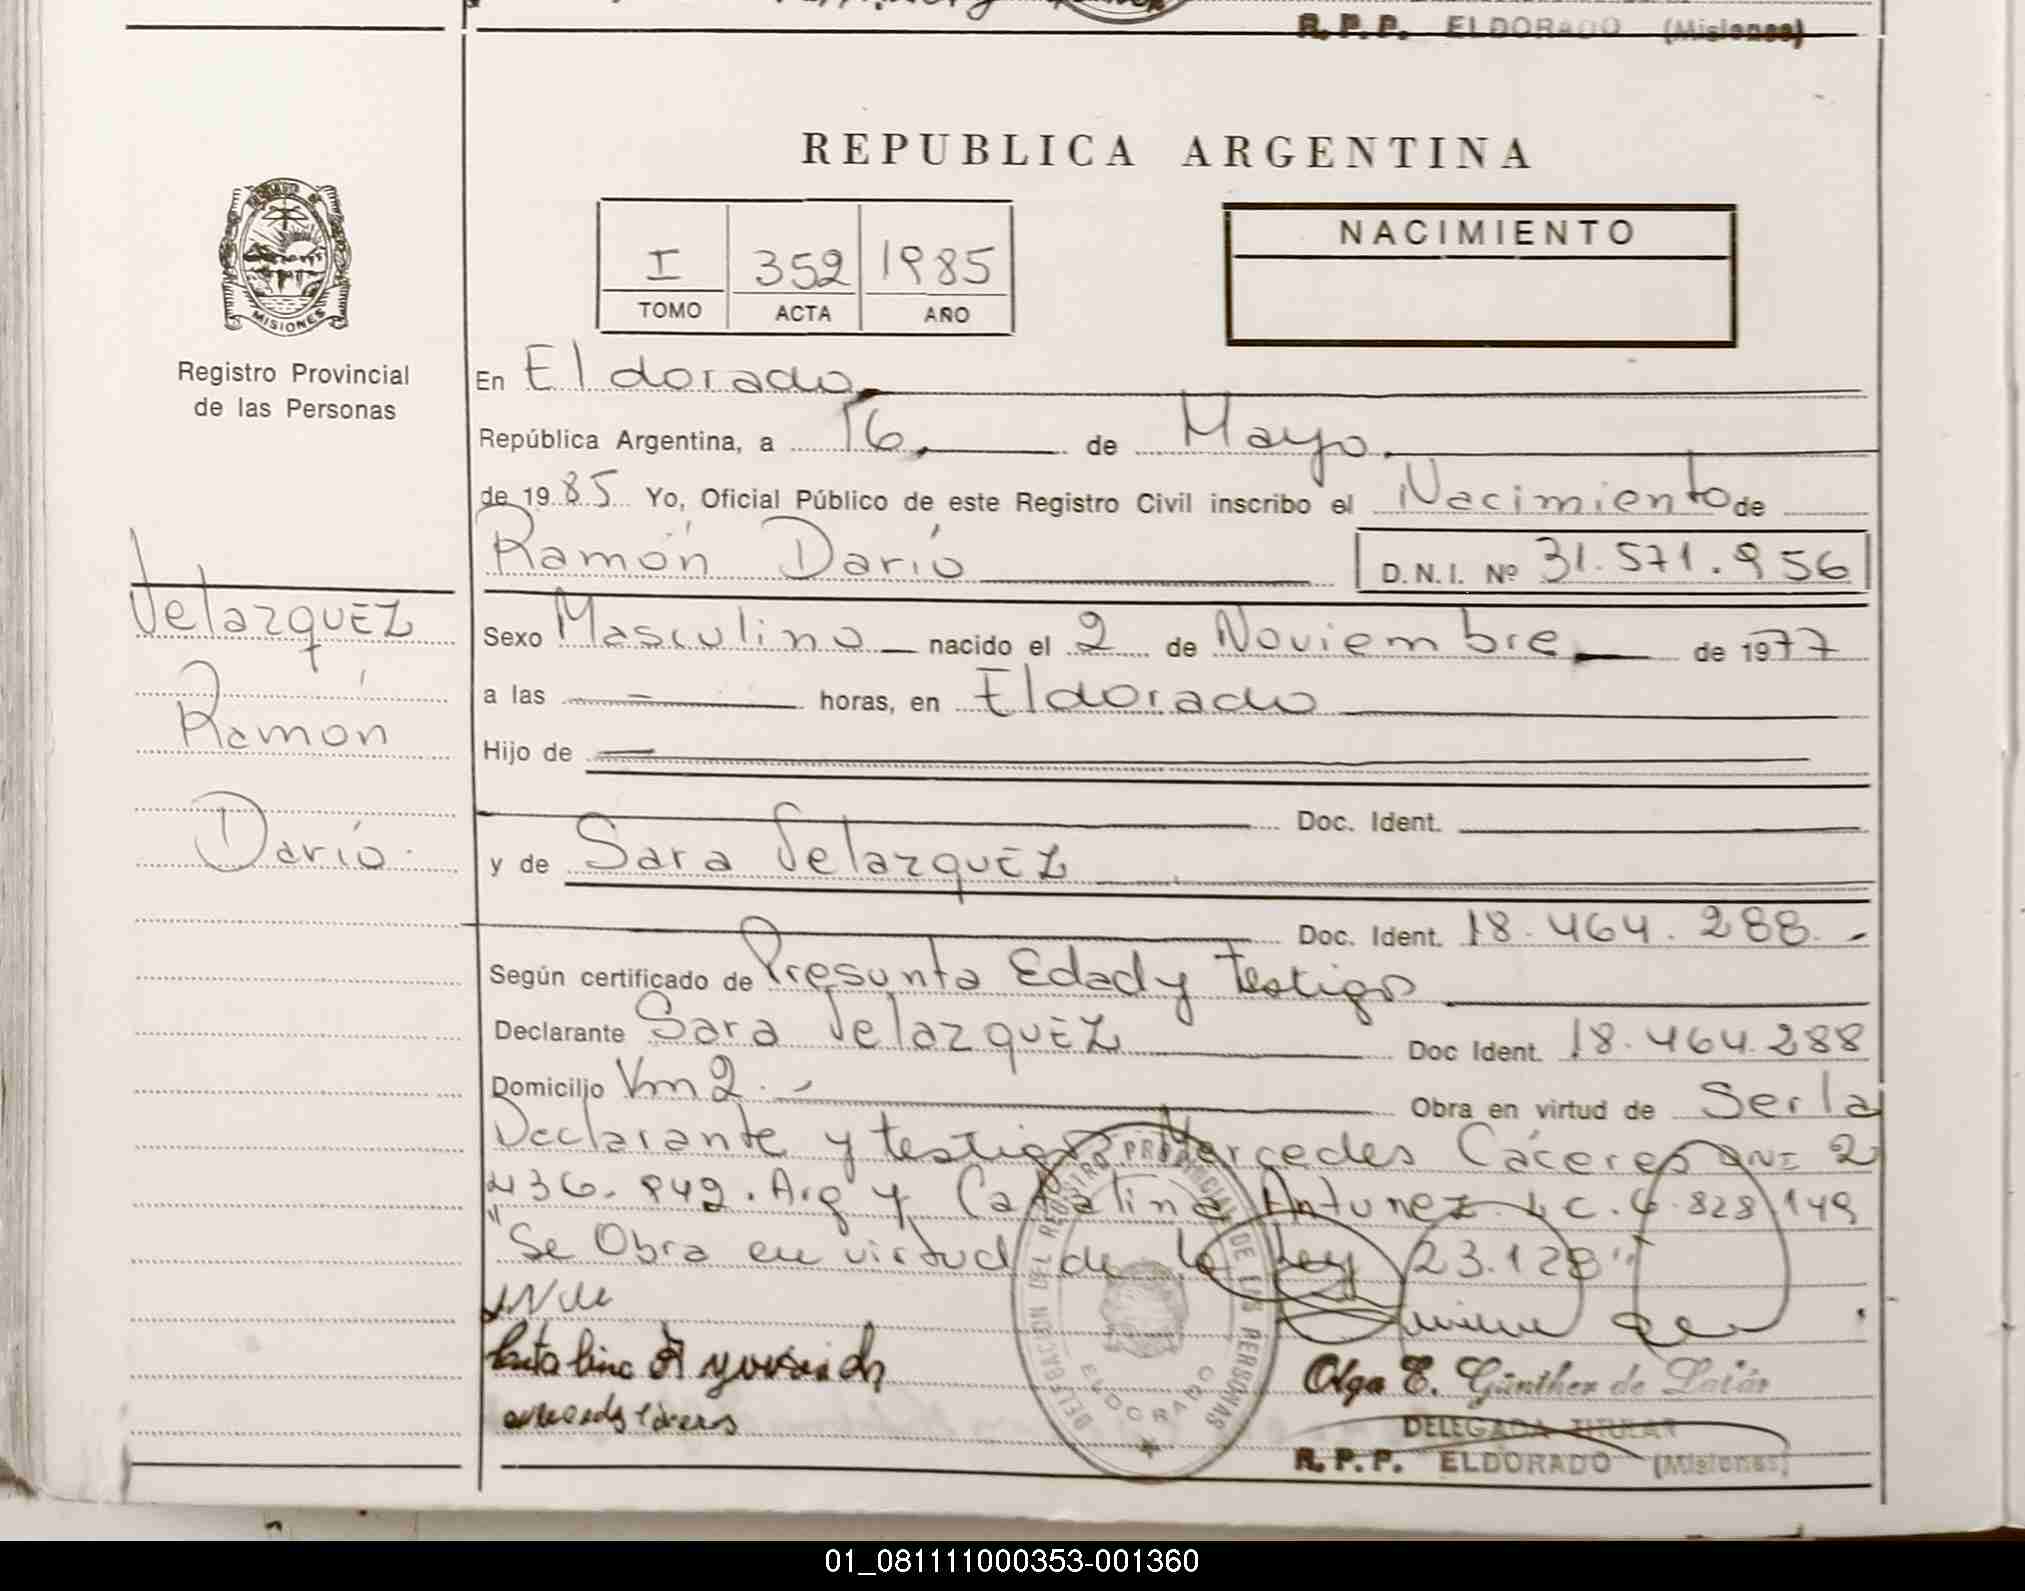 R.P.P. ELDORADO (Misiones)
REPUBLICA ARGENTINA
I 352 1985
TOMO ACTA AÑO
NACIMIENTO
MISIONES
Registro Provincial
de las Personas
Velazquez
Ramón
Darío.
En Eldorado
República Argentina, a 16 de Mayo
de 1985 Yo, Oficial Público de este Registro Civil inscribo el Nacimiento de
Ramón Darío D.N.I. Nº 31.571.956
Sexo Masculino nacido el 2 de Noviembre de 1977
a las — horas, en Eldorado
Hijo de —
Doc. Ident.
y de Sara Velazquez
Doc. Ident. 18.464.288.-
Según certificado de Presunta Edad y testigo
Declarante Sara Velazquez Doc Ident. 18.464.288
Domicilio Km 2.- Obra en virtud de Ser la
Declarante y testigos Mercedes Cáceres DNI 2
436.942. Arg y Catalina Antunez L.C. 6.828.149
"Se Obra en virtud de la Ley 23.128"
DELEGACION DEL REGISTRO PROVINCIAL DE LAS PERSONAS
ELDORADO
Olga E. Günther de Laiár
DELEGADA TITULAR
R.P.P. ELDORADO (Misiones)
01_081111000353-001360